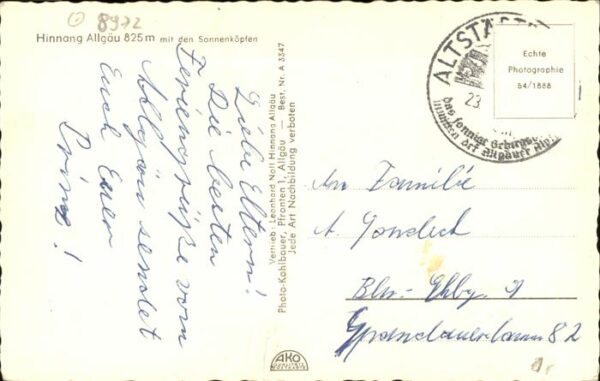 8972
Hinnang Allgäu 825 m mit den Sonnenköpfen
Liebe Eltern!
Die besten
Feriengrüße vom
Allgäu sendet
Euch Euer
Prinz!
Vertrieb: Leonhard Noll Hinnang Allgäu
Photo-Kohlbauer, Pfronten 1, Allgäu — Best. Nr. A 3547
Jede Art Nachbildung verboten
AKO
ALTSTÄDTE
23
Das sonnige Gebirgs
inmitten der Allgäuer
Echte
Photographie
54/1888
An Familie
A.
Bln.
Spandauerdamm 82